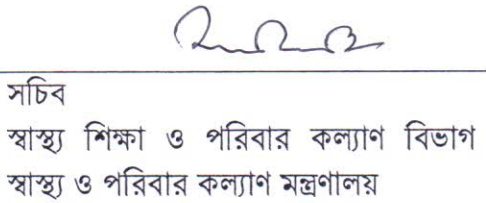 সচিব
স্বাস্থ্য শিক্ষা ও পরিবার কল্যাণ বিভাগ
স্বাস্থ্য ও পরিবার কল্যাণ মন্ত্রণালয়